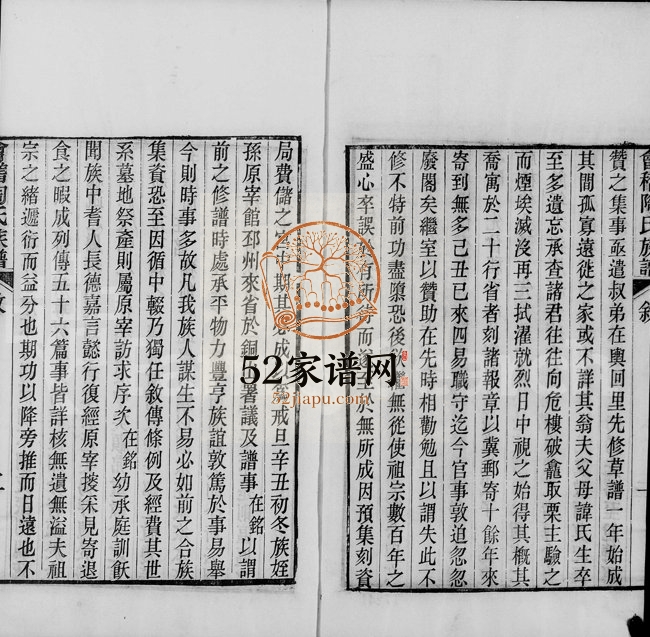 會稽陶氏族譜 敘
贊之集事亟遣叔弟在輿回里先修草譜一年始成
其間孤寡遠徙之家或不詳其翁夫父母諱氏生卒
至多遺忘承查諸君往往向危樓破龕取栗主驗之
而煙埃滅沒再三拭濯就烈日中視之始得其概其
喬寓於二十行省者刻諸報章以冀郵寄十餘年來
寄到無多己丑已來四易職守迄今官事敦迫忽忽
廢閣矣繼室以贊助在先時相勸勉且以謂失此不
修不特前功盡隳恐後 無從使祖宗數百年之
盛心卒誤於有所待而 至於無所成因預集刻資
局費儲之 期其 成以 戒旦辛丑初冬族姪
孫原宰館邳州來省於銅 署議及譜事 在銘以謂
前之修譜時處承平物力豐亨族誼敦篤於事易舉
今則時事多故凡我族人謀生不易必如前之合族
集資恐至因循中輟乃獨任敘傳條例及經費其世
系墓地祭產則屬原宰訪求序次 在銘 幼承庭訓飫
聞族中耆人長德嘉言懿行復經原宰採采見寄退
食之暇成列傳五十六篇事皆詳核無遺無溢夫祖
宗之緒遞衍而益分也期功以降旁推而日遠也不
會稽陶氏族譜
52家谱网
52jiapu.com